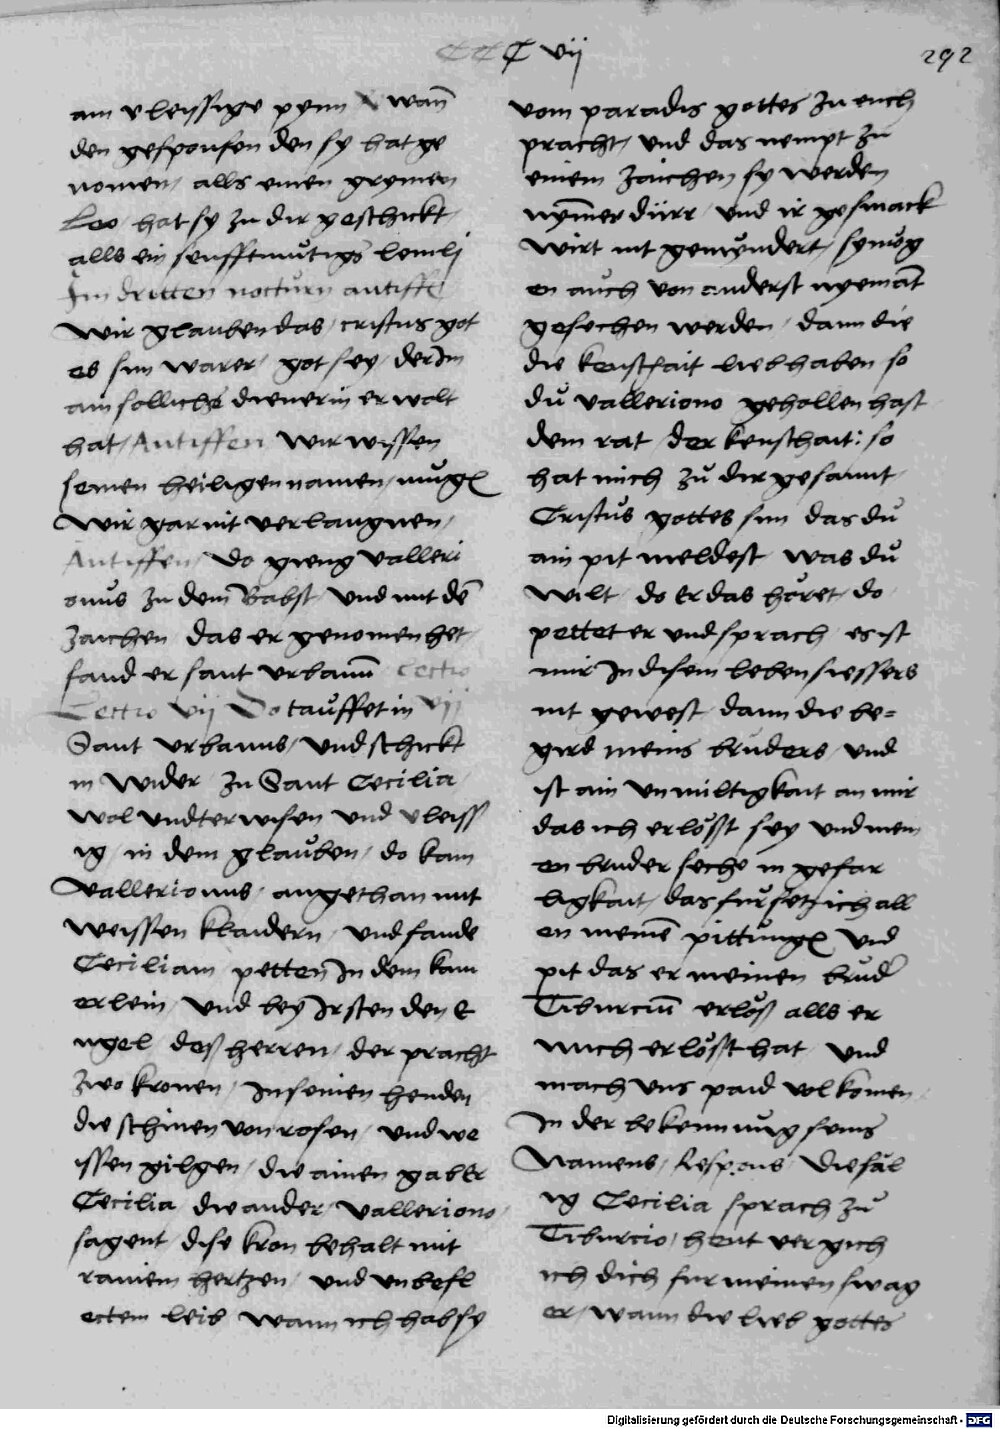 CCC vij
292
am vleissige pynn wann̄
den gesponsen den sy hat ge
nomen / alls einen grymen
Leo / hat sy zu dir geschickt /
alls ein senfftmu̇tigs lemlj
Im dritten nocturn antiffe
Wir glauben das / cristus got
es sun warer / got sey / der Im
ain sollichs dienerin erwolt
hat / Antiffen Wir wissen
seinen heiligen namen / mu̇g
Wir gar nit verlaugnen /
Antiffen / do gieng valleri
onus zu dem Babst / vnd mit dē
Zaichen / das er genomen het /
fand er sant vrbanū Lectio
Lectio vij Do tau̇ffet in vij
Sant vrbanus / vnd schickt
in wider / zu Sant Cecilia /
Wol vndterwisen vnd vleiss
ig / in dem glau̇ben / do kam
Vallerionus / angethan mit
weissen klaidern / vnd fande
Ceciliam / petten In dem kam
erlein / vnd bey Ir sten den E
ngel / deß herren / der pracht
Zwo kronen / In seinen henden /
die schinen von rosen / vnd we
issen gilgen / die ainen gab Er
Cecilia / die ander / Valleriono /
sagent / dise kron behalt mit
rainem hertzen / vnd vnbefl
ectem leib wann ich hab sy
vom paradis gottes zu euch
pracht / vnd das nempt zu
einem Zaichen sy werden
nym̄er dürr / vnd ir gesmack
Wirt nit gemyndert / sy mu̇g
en au̇ch von anderst nyemāt
gesechen werden / dann die
die keuschait lieb haben so
du̇ Valleriono gehollen hast
dem rat / der keuschait : so
hat mich zu̇ dir gesannt /
Cristu̇s gottes sun das du̇
ain pit meldest was du̇
Wilt / do Er das höret / do /
pettet er vnd sprach / es ist
mir In disem leben siessers
nit gewest / dann die be=
gird meins bruders / vnd
ist ain vnmiltigkait an mir
das ich erlöst sey vnd mein
en bruder seche in gefar
ligkait / das fu̇rsetz ich all
en meinē pittu̇ng vnd
pit das er meinen brud̄
Tiburciū erlöß alls er
mich erlöst hat / vnd
mach vns paid volkomen /
In der bekennu̇g seins
Namens / Respons / Die säl
ig Cecilia sprach zu̇
Tiburcio / heut vergich
ich dich fur meinen swag
er / wann die lieb gottes
Digitalisierung gefördert durch die Deutsche Forschungsgemeinschaft - DFG